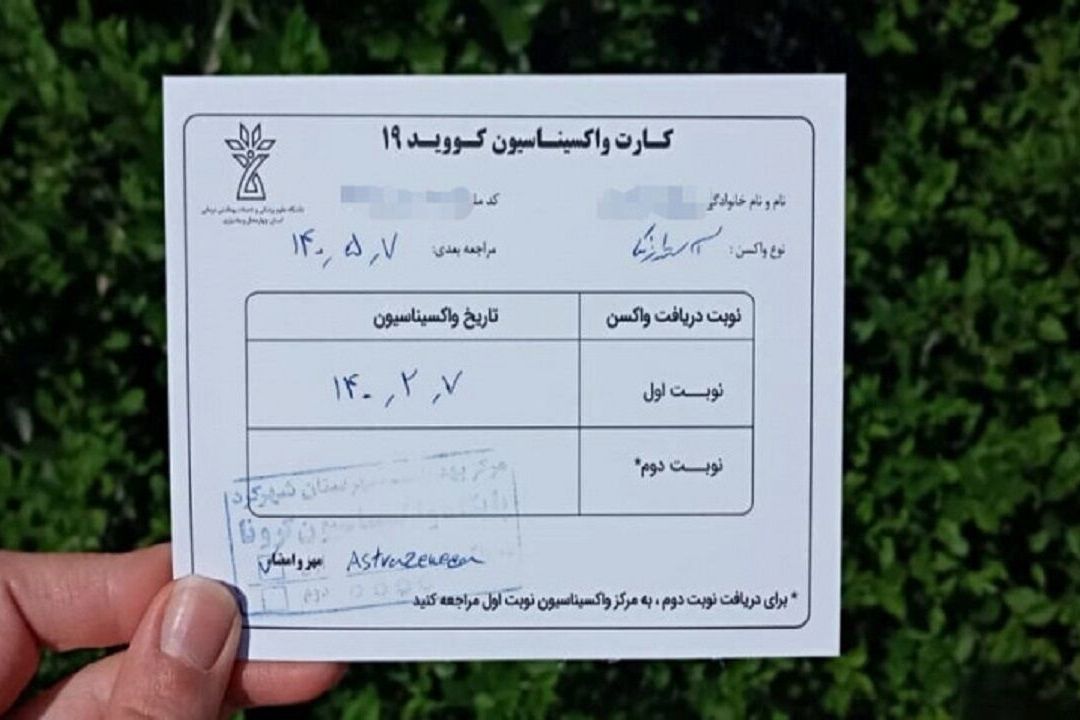 کارت واکسیناسیون کووید ۱۹
دانشگاه علوم پزشکی و خدمات بهداشتی درمانی
استان چهارمحال و بختیاری
نام و نام خانوادگی
کد مل
نوع واکسن: آسترازنکا
مراجعه بعدی: ۱۴۰۰,۵,۷
نوبت دریافت واکسن تاریخ واکسیناسیون
نوبت اول ۱۴۰۰,۲,۷
نوبت دوم*
مرکز شهرستان شهرکرد
کورونا
مهر و امضاء AstraZeneca
دوم
* برای دریافت نوبت دوم، به مرکز واکسیناسیون نوبت اول مراجعه کنید